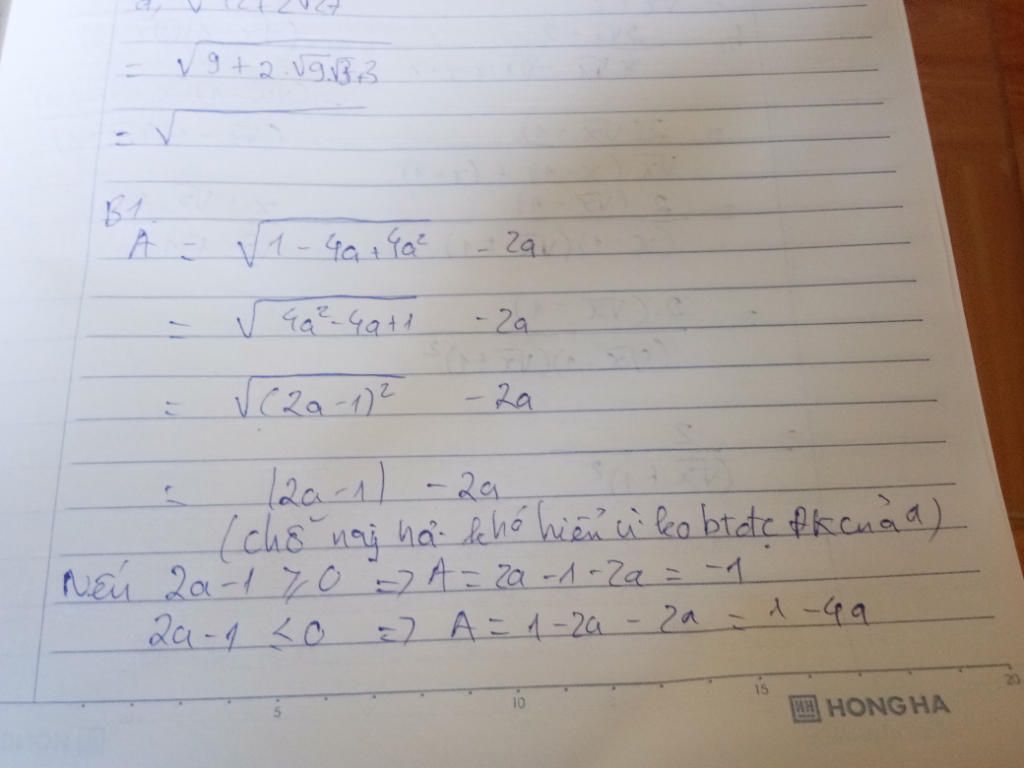 a, √12+2√27
= √9 + 2.√9.√3+3
= √
B1.
A = √1 - 4a + 4a² - 2a
= √4a² - 4a + 1 - 2a
= √(2a - 1)² - 2a
= |2a - 1| - 2a
(chỗ này hơi khó hiểu vì ko btđc ĐK của a)
Nếu 2a - 1 ≥ 0 => A = 2a - 1 - 2a = -1
2a - 1 < 0 => A = 1 - 2a - 2a = 1 - 4a
5 10 15 20
HONG HA